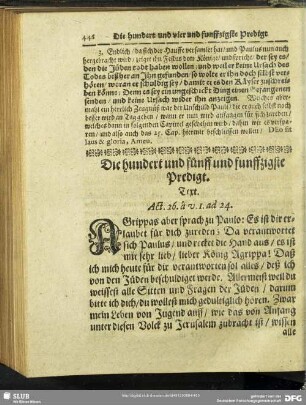 442 Die hundert und vier und funffzigste Predigt.
3. Endlich / da sich der Hauffe versamlet hat / und Paulus nun auch
hergebracht wird / zeiget ihn Festus dem Könige / und spricht: Der sey es /
den die Jüden todt haben wollen / und weil er keine Ursach des
Todes bißher an Ihm gefunden / so wolte er ihn doch selbst ver-
hören / woran er schuldig sey / damit er es den Käyser
ben könte: Denn es sey ein ungeschickt Ding einen Gefangenen
senden / und keine Ursach wieder ihn anzeigen.
mahl ein herrlich Zeugniß
welches denn in folgenden Capittel geschehen wird, daher wir es verspa-
ren / und also auch das 25. Cap. hiermit beschliessen wollen / Deo sit
laus & gloria, Amen.
Die hundert und fünff und funffzigste
Predigt.
Text.
Act. 26. à v. 1. ad 24.
AGrippas aber sprach zu Paulo: Es ist dir er-
laubet für dich zureden: Da verantwortet
sich Paulus / und recket die Hand aus / es ist
mir sehr lieb / lieber König Agrippa! Daß
ich mich heute für dir verantworten sol alles / deß ich
von den Jüden beschüldiget werde. Allermeist weil du
weissest alle Sitten und Fragen der Jüden / darum
bitte ich dich / du wollest mich gedultiglich hören. Zwar
mein Leben von Jugend auff / wie das von Anfang
unter diesen Volck zu Jerusalem zubracht ist / wissen
alle
SLUB
DFG